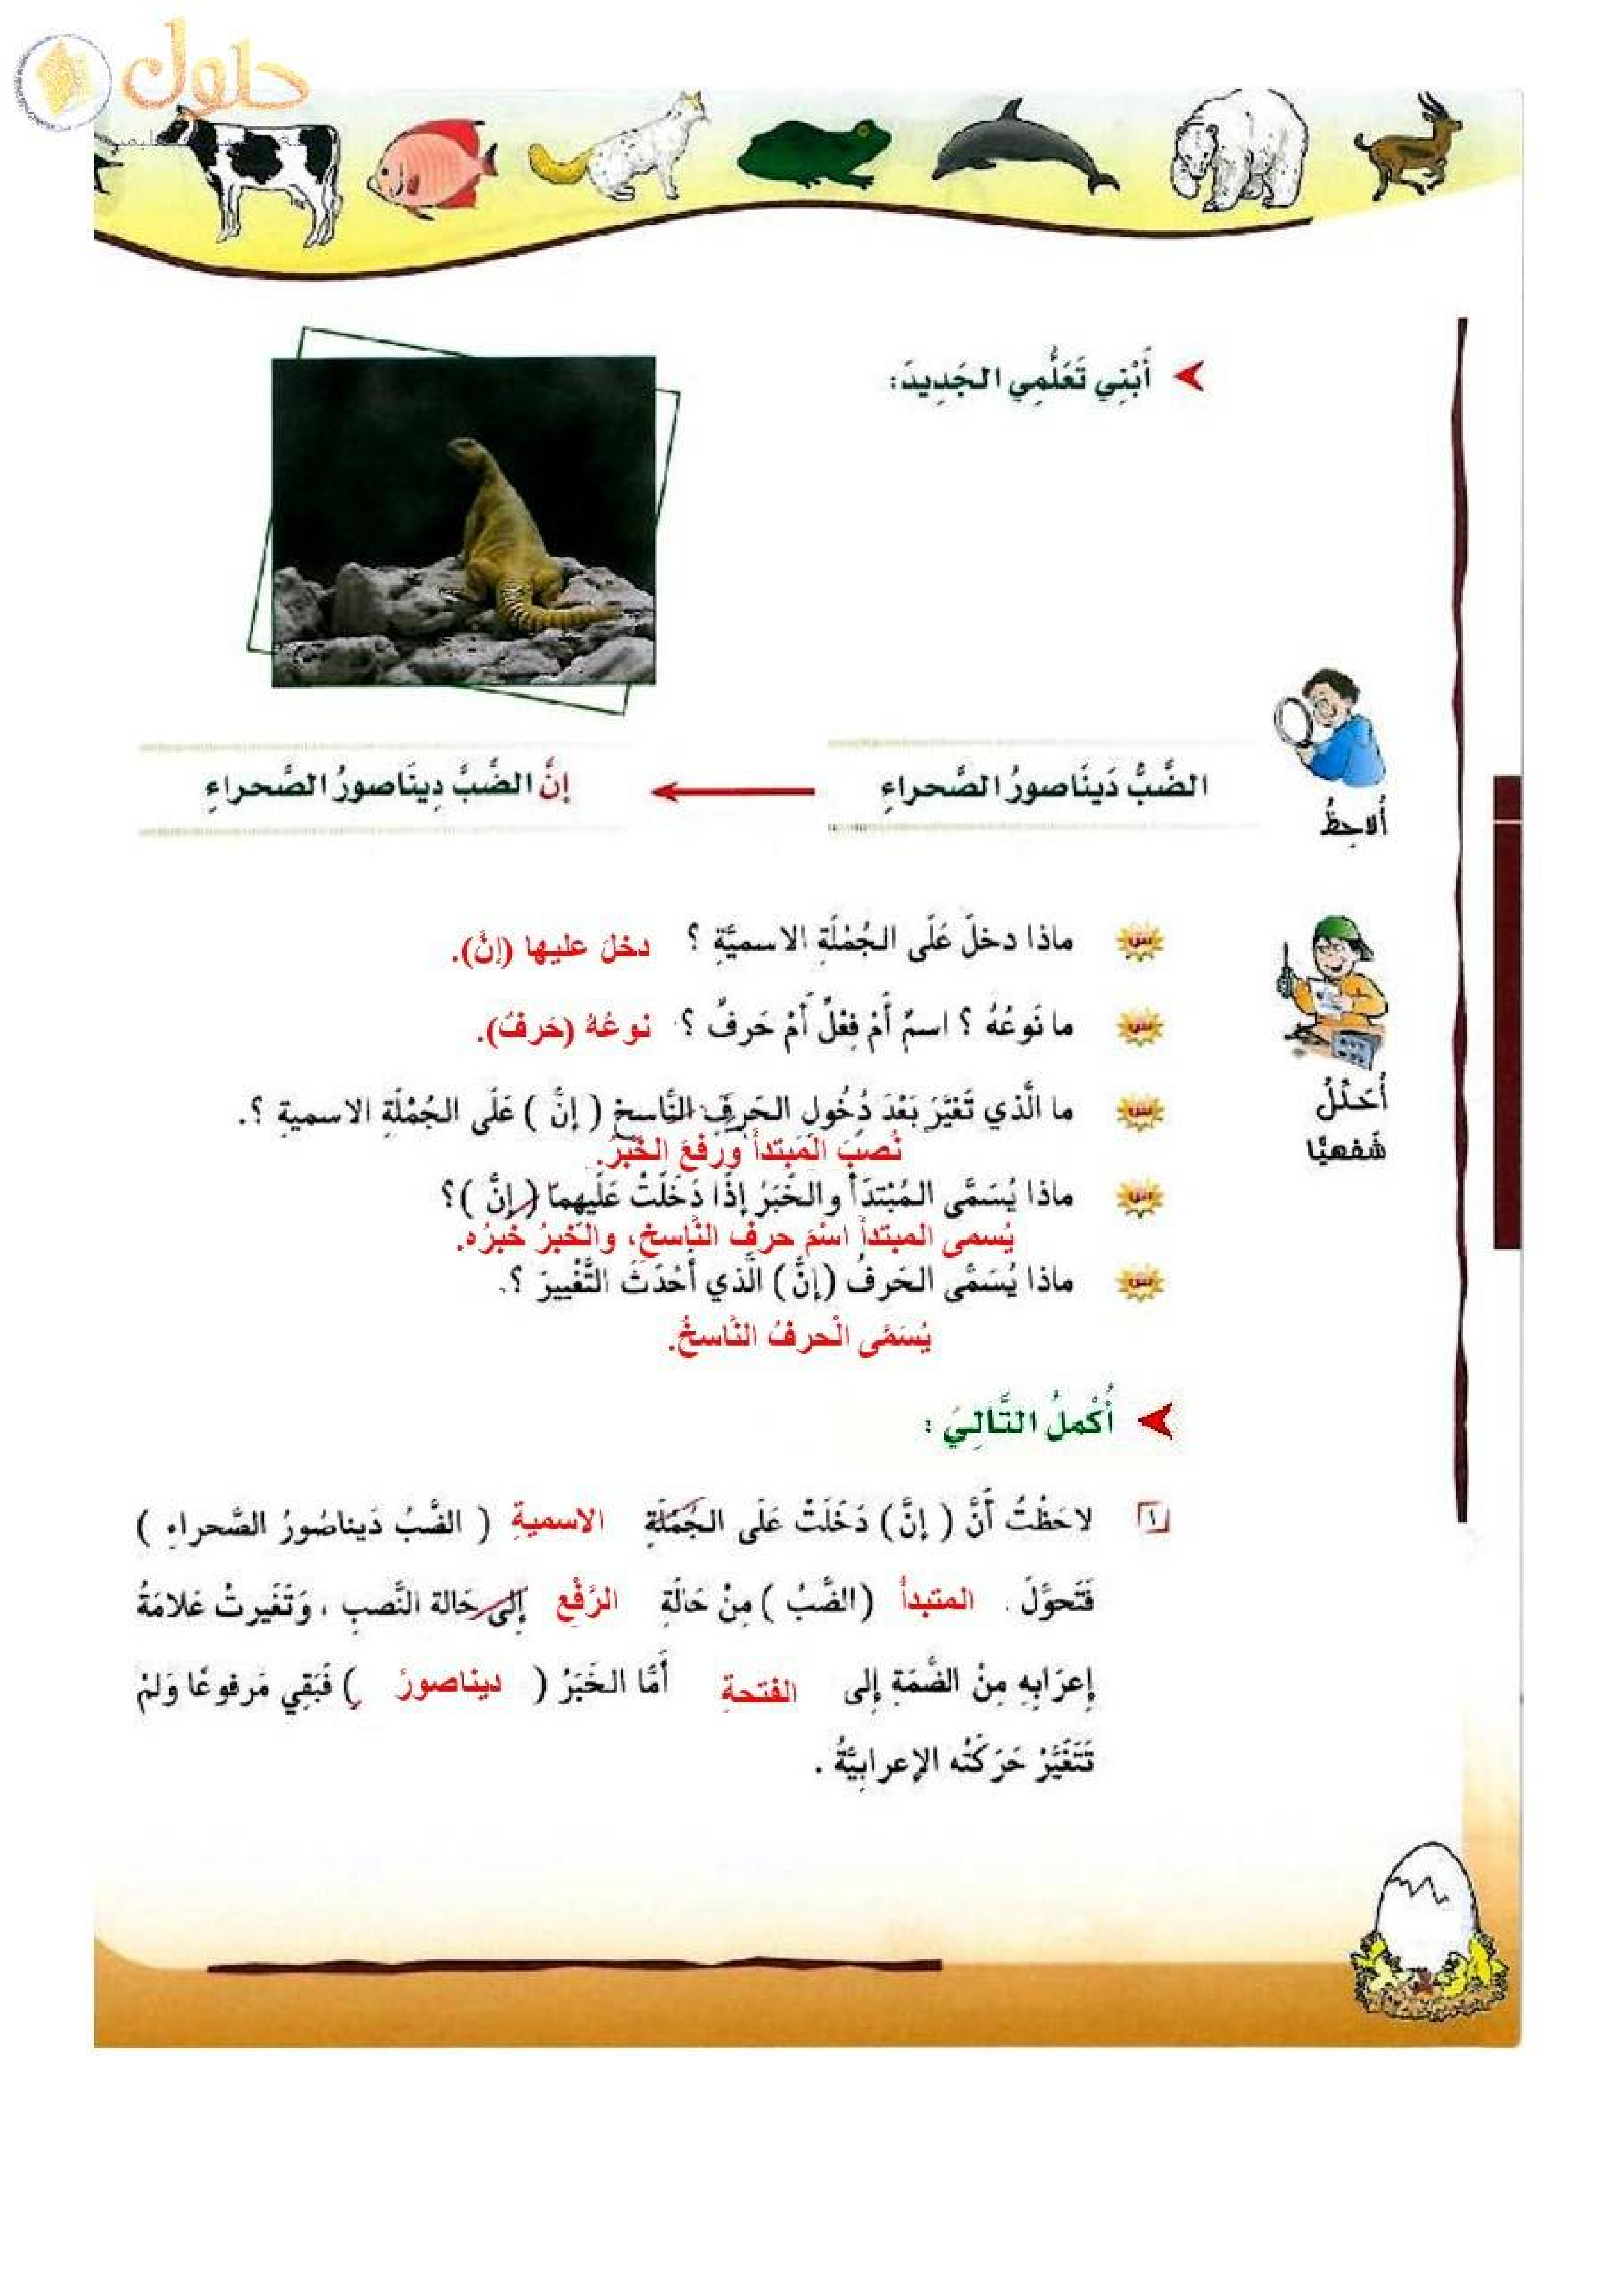 حلول
أَبْنِي تَعَلُّمِي الجَدِيدَ:
الضَّبُّ دَينَاصورُ الصَّحراءِ
إنَّ الضَّبَّ دِينَاصورُ الصَّحراءِ
أُلاحِظُ
ماذا دخلَ عَلَى الجُمْلَةِ الاسميَّةِ ؟ دخلَ عليها (إنَّ).
ما نَوعُهُ ؟ اسمٌ أَمْ فِعْلٌ أَمْ حَرفٌ ؟ نوعُهُ (حَرفٌ).
أُحَلِّلُ
شَفهيًّا
ما الَّذي تَغَيَّرَ بَعْدَ دُخُولِ الحَرفِ النَّاسخِ ( إنَّ ) عَلَى الجُمْلَةِ الاسميةِ ؟.
نُصبَ المَبتدأَ ورفعَ الخَبرُ.
ماذا يُسَمَّى المُبْتَدَأُ والخَبَرُ إذَا دَخَلَتْ عَلَيهِمَا ( إنَّ )؟
يُسمى المبتدأُ اسْمَ حرفِ النَّاسخِ، والخَبرُ خبرُه.
ماذا يُسَمَّى الحَرفُ (إنَّ) الَّذي أَحْدَثَ التَّغْييرَ ؟.
يُسَمَّى الْحرفُ النَّاسخُ.
أُكْمِلُ التَّالِيَ :
١ لاحَظْتُ أَنَّ ( إنَّ ) دَخَلَتْ عَلَى الجُمْلَةِ الاسميةِ ( الضَّبُّ دَيناصُورُ الصَّحراءِ )
فَتَحوَّلَ . المتبدأُ (الضَّبُّ ) مِنْ حَالَةِ الرَّفْعِ إلى حَالة النَّصبِ ، وَتَغَيرتْ عَلامَةُ
إعرَابِهِ مِنْ الضَّمَةِ إلى الفتحةِ أَمَّا الخَبَرُ ( ديناصورُ ) فَبَقِي مَرفوعًا وَلَمْ
تَتَغَيَّرْ حَرَكَتُه الإعرابِيَّةُ .